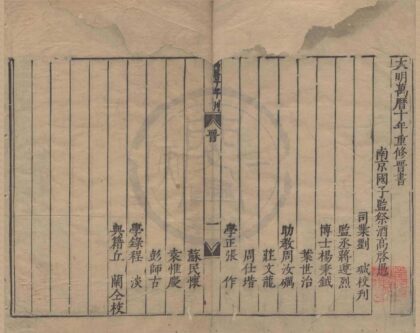 大明萬曆十年重修晉書
南京國子監祭酒高啓愚
司業劉 瑊校刊
監丞蔣遵烈
博士楊秉鉞
葉世治
助教周汝礪
莊文龍
周仕堦
學正張 作
晉
一
蘇民懷
袁惟慶
彭師古
學錄程 淡
典籍丘 蘭仝校